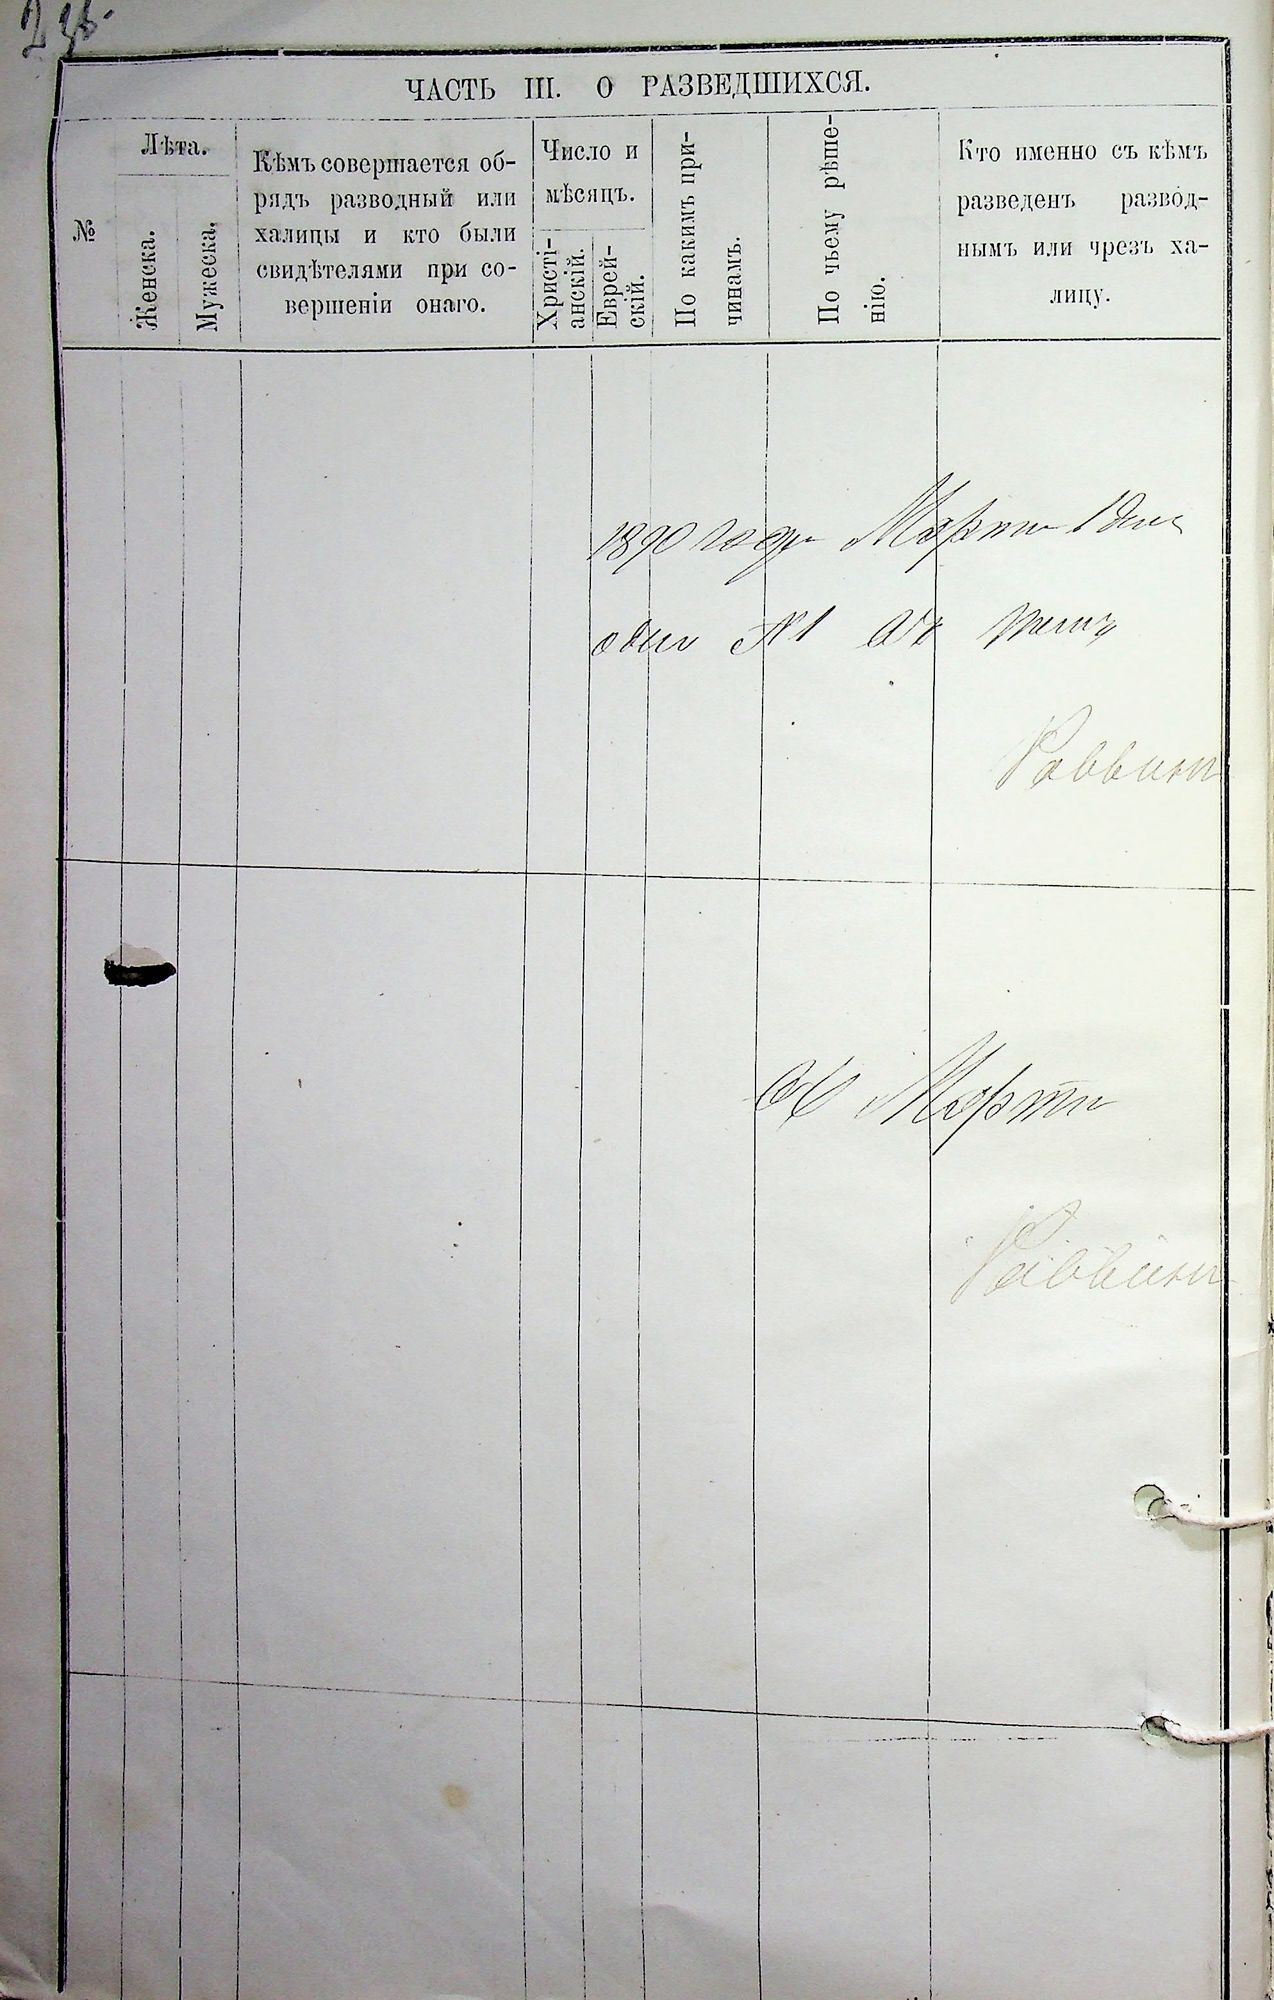 ЧАСТЬ III. О РАЗВЕДШИХСЯ.
№
Лѣта.
Женска.
Мужеска.
Кѣмъ совершается об-
рядъ разводный или
халицы и кто были
свидѣтелями при со-
вершеніи онаго.
Число и
мѣсяцъ.
Христі-
анскій.
Еврей-
скій.
По какимъ при-
чинамъ.
По чьему рѣше-
нію.
Кто именно съ кѣмъ
разведенъ развод-
нымъ или чрезъ ха-
лицу.
1890 года Марта 1 дня
одинъ №1
Раввинъ
Марта
Раввинъ